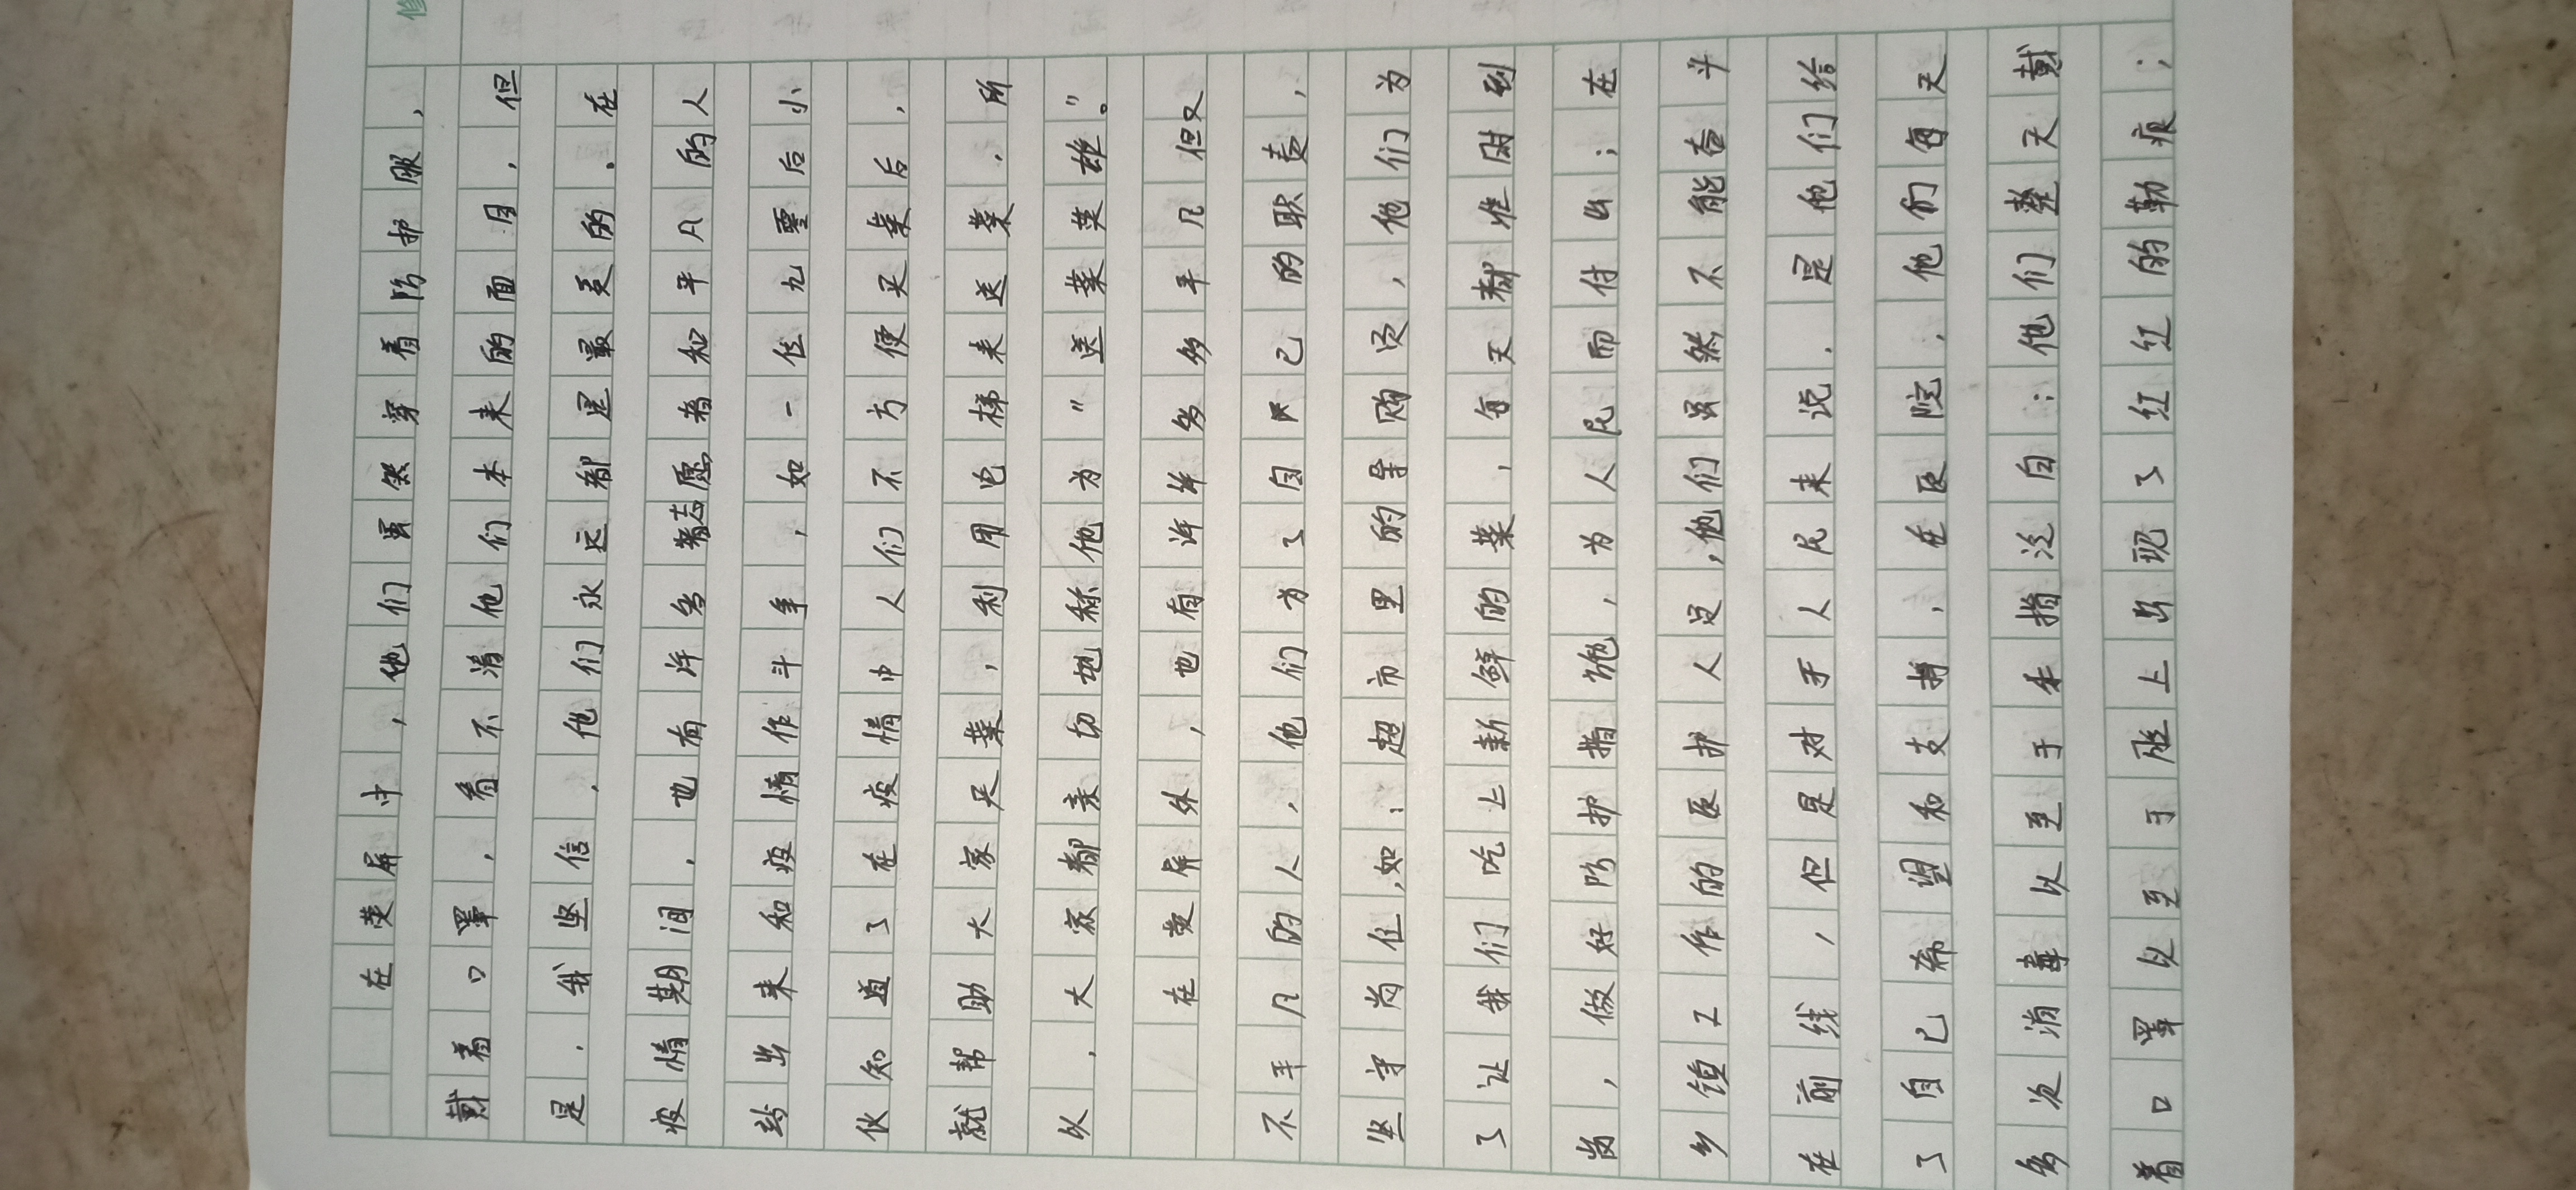 修
在荧屏中，他们虽然穿着防护服，
戴着口罩，看不清他们本来的面目，但
是，我坚信，他们永远都是最美的。在
疫情期间，也有许多志愿者和平凡的人
站出来和疫情作斗争，如一位九零后小
伙知道了在疫情中人们不方便买菜后，
就帮助大家买菜，利用电梯来送菜，所
以，大家都亲切地称他为“送菜英雄”。
在荧屏外，也有许许多多平凡但又
不平凡的人，他们为了自己的职责，
坚守岗位，如：超市里的导购员，他们为
了让我们吃上新鲜的菜，每天都准时到
岗，做好防护措施，为人民而付出；在
乡镇工作的医护人员，他们虽然不能奋斗
在前线，但是对于人民来说，是他们给
了自己希望和支持，在医院，他们每天
多次消毒以至于手指泛白；他们整天戴
着口罩以至于脸上出现了红红的勒痕；